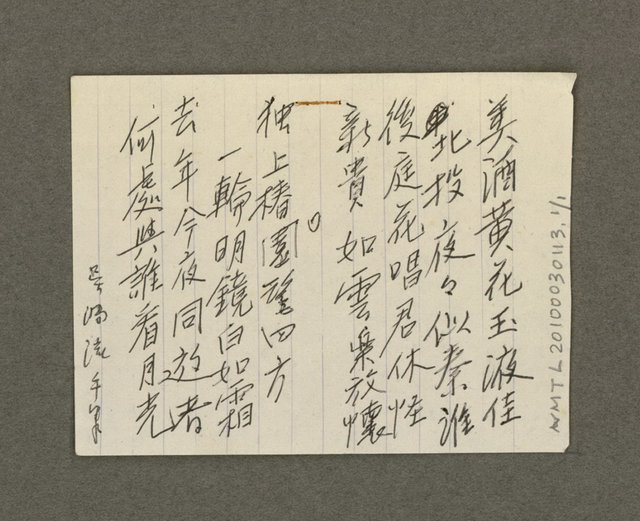 美酒黄花玉液佳
北投夜々似秦淮
後庭花唱君休怪
新貴如雲樂放懷
独上椿園望四方
一輪明鏡白如霜
去年今夜同遊者
何處與誰看月光
吳
NMTL20100030113.1/1